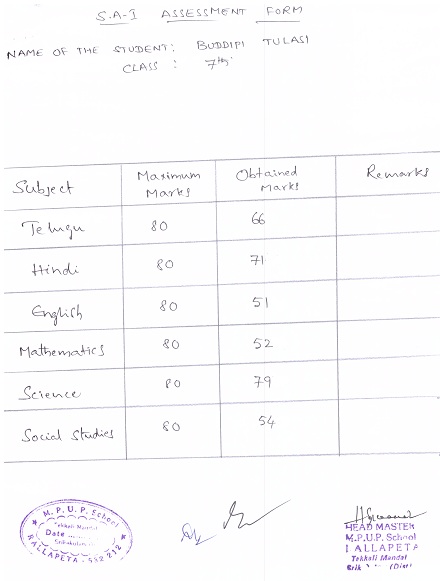 S.A-I ASSESSMENT FORM
NAME OF THE STUDENT: BUDDIPI TULASI
CLASS : 7th
Subject Maximum Marks Obtained Marks Remarks
Telugu 80 66
Hindi 80 71
English 80 51
Mathematics 80 52
Science 80 79
Social Studies 80 54
M.P.U.P. School
Tekkali Mandal
Date
HEAD MASTER
M.P.U.P. School
Tekkali Mandal